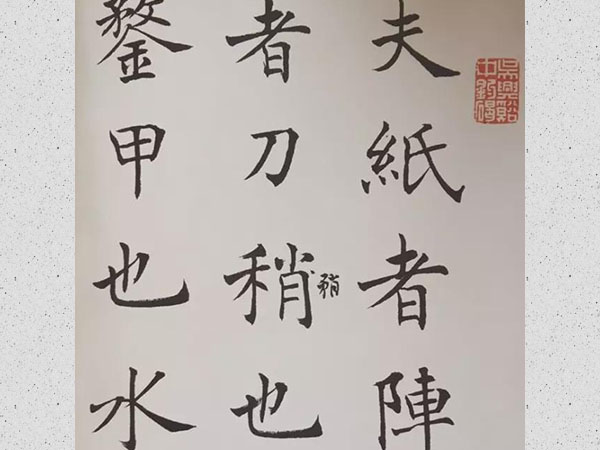 夫紙者陣
者刀稍矟也
鍪甲也水